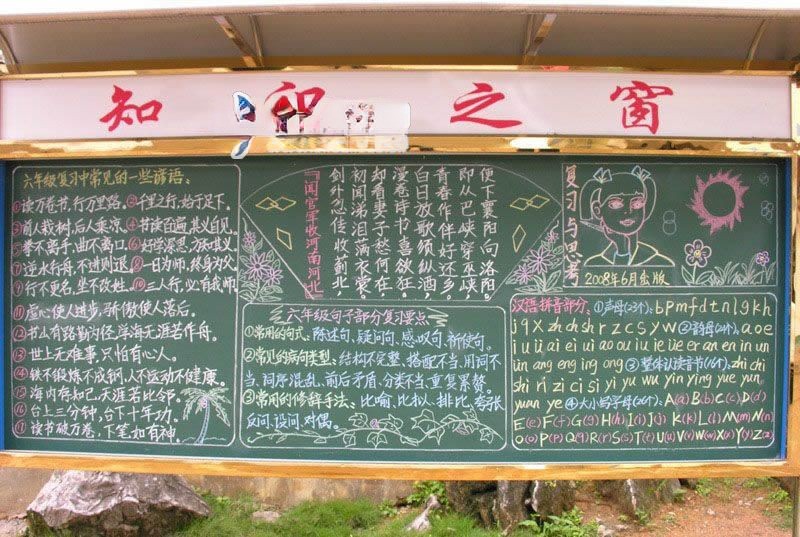 知之窗
六年级复习中常见的一些谚语:
①读万卷书,行万里路。②千里之行,始于足下。
③前人栽树,后人乘凉。④书读百遍,其义自见。
⑤拳不离手,曲不离口。⑥好学深思,方知其义。
⑦逆水行舟,不进则退。⑧一日为师,终身为父。
⑨行不更名,坐不改姓。⑩三人行,必有我师。
⑪虚心使人进步,骄傲使人落后。
⑫书山有路勤为径,学海无涯苦作舟。
⑬世上无难事,只怕有心人。
⑭铁不锻炼不成钢,人不运动不健康。
⑮海内存知己,天涯若比邻。
⑯台上三分钟,台下十年功。
⑰读书破万卷,下笔如有神。
『闻官军收河南河北』
剑外忽传收蓟北,
初闻涕泪满衣裳。
却看妻子愁何在,
漫卷诗书喜欲狂。
白日放歌须纵酒,
青春作伴好还乡。
即从巴峡穿巫峡,
便下襄阳向洛阳。
六年级句子部分复习要点
①常用的句式、陈述句、疑问句、感叹句、祈使句。
②常见的病句类型、结构不完整、搭配不当、用词不
当、词序混乱、前后矛盾、分类不当、重复累赘。
③常用的修辞手法、比喻、比拟、排比、夸张
反问、设问、对偶。
复习与思考
2008年6月出版
汉语拼音部分、①声母(23个)、b p m f d t n l g k h
j q x zh ch sh r z c s y w ②韵母(24个)、a o e
i u ü ai ei ui ao ou iu ie üe er an en in un
ün ang eng ing ong ③整体认读音节(16个)、zhi chi
shi ri zi ci si yi yu wu yin ying yue yun
yuan ye ④大小写字母(26个)、A(a) B(b) C(c) D(d)
E(e) F(f) G(g) H(h) I(i) J(j) K(k) L(l) M(m) N(n)
O(o) P(p) Q(q) R(r) S(s) T(t) U(u) V(v) W(w) X(x) Y(y) Z(z)